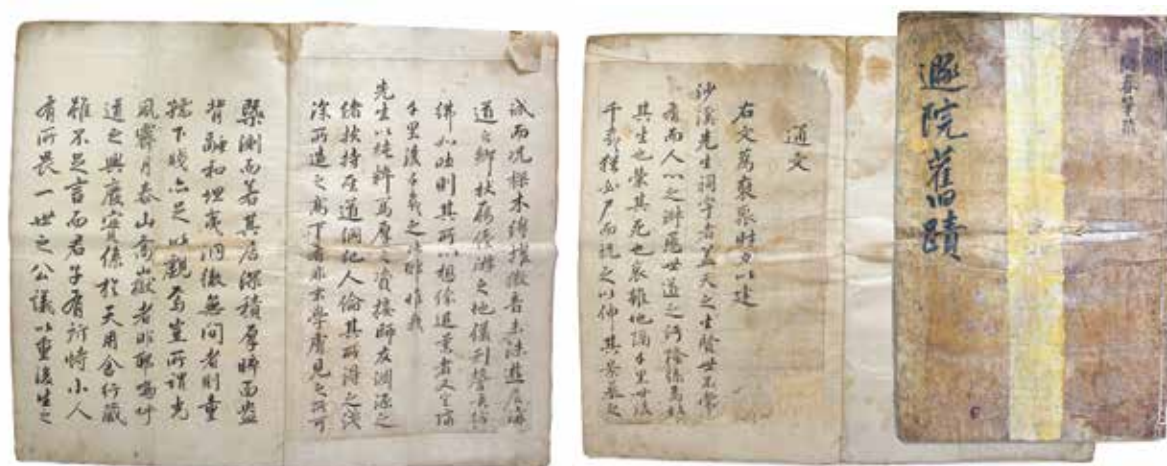 遯院舊蹟
春筆
通文
右文爲裒聚財力以建
沙溪先生祠宇者盖天之生賢世不常
有而人心之淑慝世道之汚隆係焉故
其生也榮其死也哀雖地隔千里世後
千載猶必尸而祝之以伸其景慕之
誠而況樑木纔摧徽音未沫遊居講
道之鄕杖屨游之地儀刑謦咳彷
彿如昨則其所以想像追慕者又豈隔
千里後千載之比耶惟我
先生以純粹篤厚之資接師友淵源之
緖扶持道綱紀人倫其所得之淺
深所造之高下有非末學膚見之所可
槩測而若其居深積厚睟面盎
背融和坦夷洞徹無間者則童
孺下賤亦足以觀焉豈所謂光
風霽月泰山喬嶽者非耶嗚呼
道之興廢實係於天用舍行藏
雖不足言而君子有所恃小人
有所畏一世之公議以重後生之